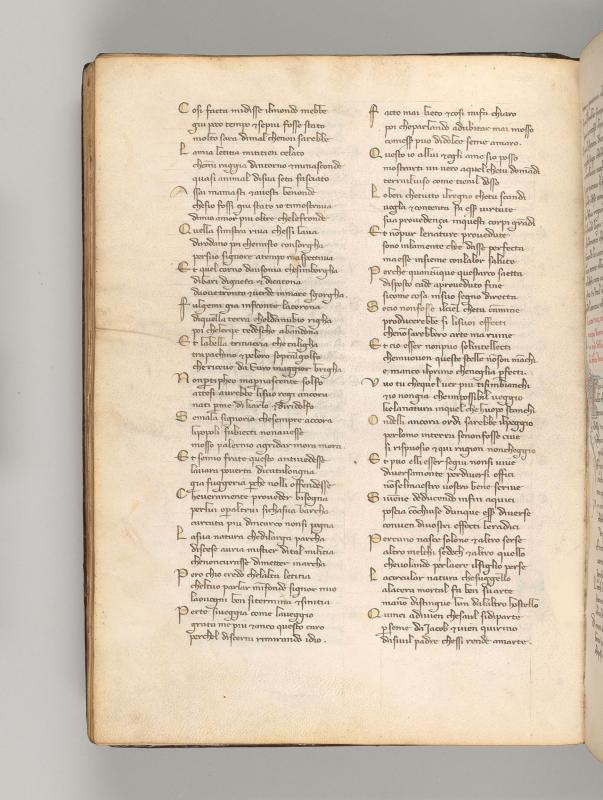 Cosi facta midisse ilmondo mebbe
giu poco tempo & sepiu fosse stato
molto sara dimal chenon sarebbe
La mia letitia mititen celato
chemi raggia dintorno & minasconde
quasi animal disua seta fasciato
Assai mamasti & avesti benonde
chesio fossi giu stato io timostrava
dimio amor piu oltre chelefronde
Quella sinistra riva chessi lava
dirodano poi chemisto consorgha
persuo signore atempo maspectava
Et quel corno dausonia chesimborgha
dibari digaeta & dicatona
daove tronto & verde inmare sgorgha
Fulgemi gia infronte lacorona
diquella terra cheldanubio righa
poi cheleripe tedesche abandona
Et labella trinacria checaligha
trapachino & peloro sopralgolfo
chericeve da Euro maggior brigha
Non per tipheo manascente solfo
attesi avrebbe lisuoi regi ancora
nati per me dicarlo & diridolfo
Se mala signoria chesempre accora
lipopoli subiecti nonavesse
mosso palermo agridar mora mora
Et semio frate questo antivedesse
lavara poverta dicatalongna
gia fuggeria perche nolli offendesse
Che veramente proveder bisogna
perlui opaltrui sichasua barcha
carcata piu dincarco nonsi pogna
La sua natura chedilargha parcha
discese avria mestier dital militia
chenoncurasse dimetter inarcha
Pero chio credo chelalta letitia
cheltuo parlar minfonde signor mio
laoveogni ben sitermina & sinitia
Perte siveggia come laveggio
grata me piu & anco questo caro
perchel discerni rimirando idio.
Facto mai lieto & cosi mifa chiaro
poi cheparlando adubitar mai mosso
comesser puo didolce seme amaro.
Questo io allui & egli ame sio posso
mostrarti un vero aquel chetu domandi
terrailviso come tienil dosso
Lo ben chetutto ilregno chetu scandi
volgie & contenta fa esser virtute
sua provedenza inquesti corpi grandi
Et nonpur lenature provedute
sono inlamente che da se perfecta
maesse insieme conlalor salute
Perche quantunque questarco saetta
disposto cade aproveduto fine
sicome cosa insuo segno diretta
Se cio nonfosse ilciel chetu camine
producerebbe si lisuoi effecti
chenonsarebbero arte ma ruine
Et cio esser nonpuo selintellecti
chemuovon queste stelle nonson manchi
e manco ilprimo chenoglia perfecti.
Vuo tu chequel ver piu tisimbianchi
& io nongia cheimpossibil veggio
chelanatura inquel chehuopo stanchi
Ondelli ancora ordi sarebbe ilpeggio
perlomo interra senonfosse cive
si rispuosio & qui ragion noncheggio
Et puo elli esser segiu nonsi vive
diversamente perdiversi offici
non selmaestro vostro bene scrive
Si venne deducendo infin aquici
poscia conchiuse dunque esser diverse
convien divostri effecti leradici
Per cuno nasce solone & altro serse
altro melchisedech & altro quello
chevolando perlaere ilfiglio perse
La circular natura chesuggello
alacera mortal fa ben suarte
manon distingue lun dalaltro hostello
Quinci advien chesau sidiparte
per seme da Jacob & vien quirino
dasivil padre chessi rende amarte.